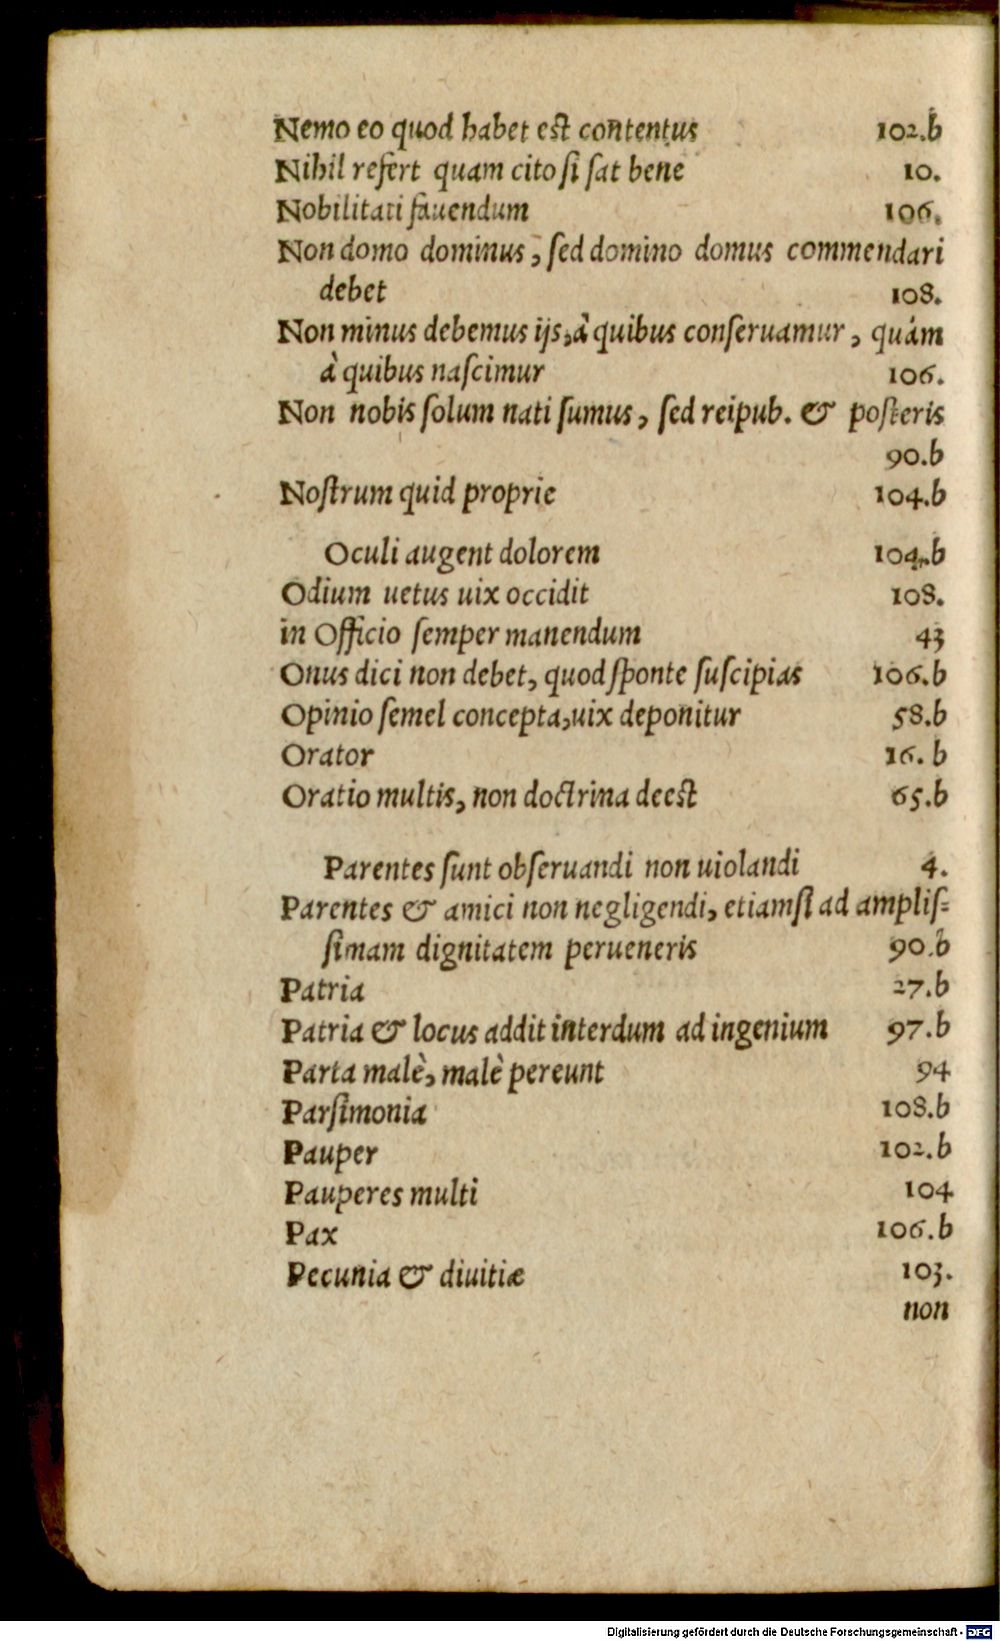 Nemo eo quod habet est contentus 102.b
Nihil refert quam cito si sat bene 10.
Nobilitati fauendum 106.
Non domo dominus, sed domino domus commendari
debet 108.
Non minus debemus ijs, à quibus conseruamur, quám
à quibus nascimur 106.
Non nobis solum nati sumus, sed reipub. & posteris
90.b
Nostrum quid proprie 104.b
Oculi augent dolorem 104.b
Odium uetus uix occidit 108.
in Officio semper manendum 43
Onus dici non debet, quod sponte suscipias 106.b
Opinio semel concepta, uix deponitur 58.b
Orator 16. b
Oratio multis, non doctrina deest 65.b
Parentes sunt obseruandi non uiolandi 4.
Parentes & amici non negligendi, etiamsi ad amplis=
simam dignitatem perueneris 90.b
Patria 27.b
Patria & locus addit interdum ad ingenium 97.b
Parta malè, malè pereunt 94
Parsimonia 108.b
Pauper 102.b
Pauperes multi 104
Pax 106.b
Pecunia & diuitiæ 103.
non
Digitalisierung gefördert durch die Deutsche Forschungsgemeinschaft - DFG